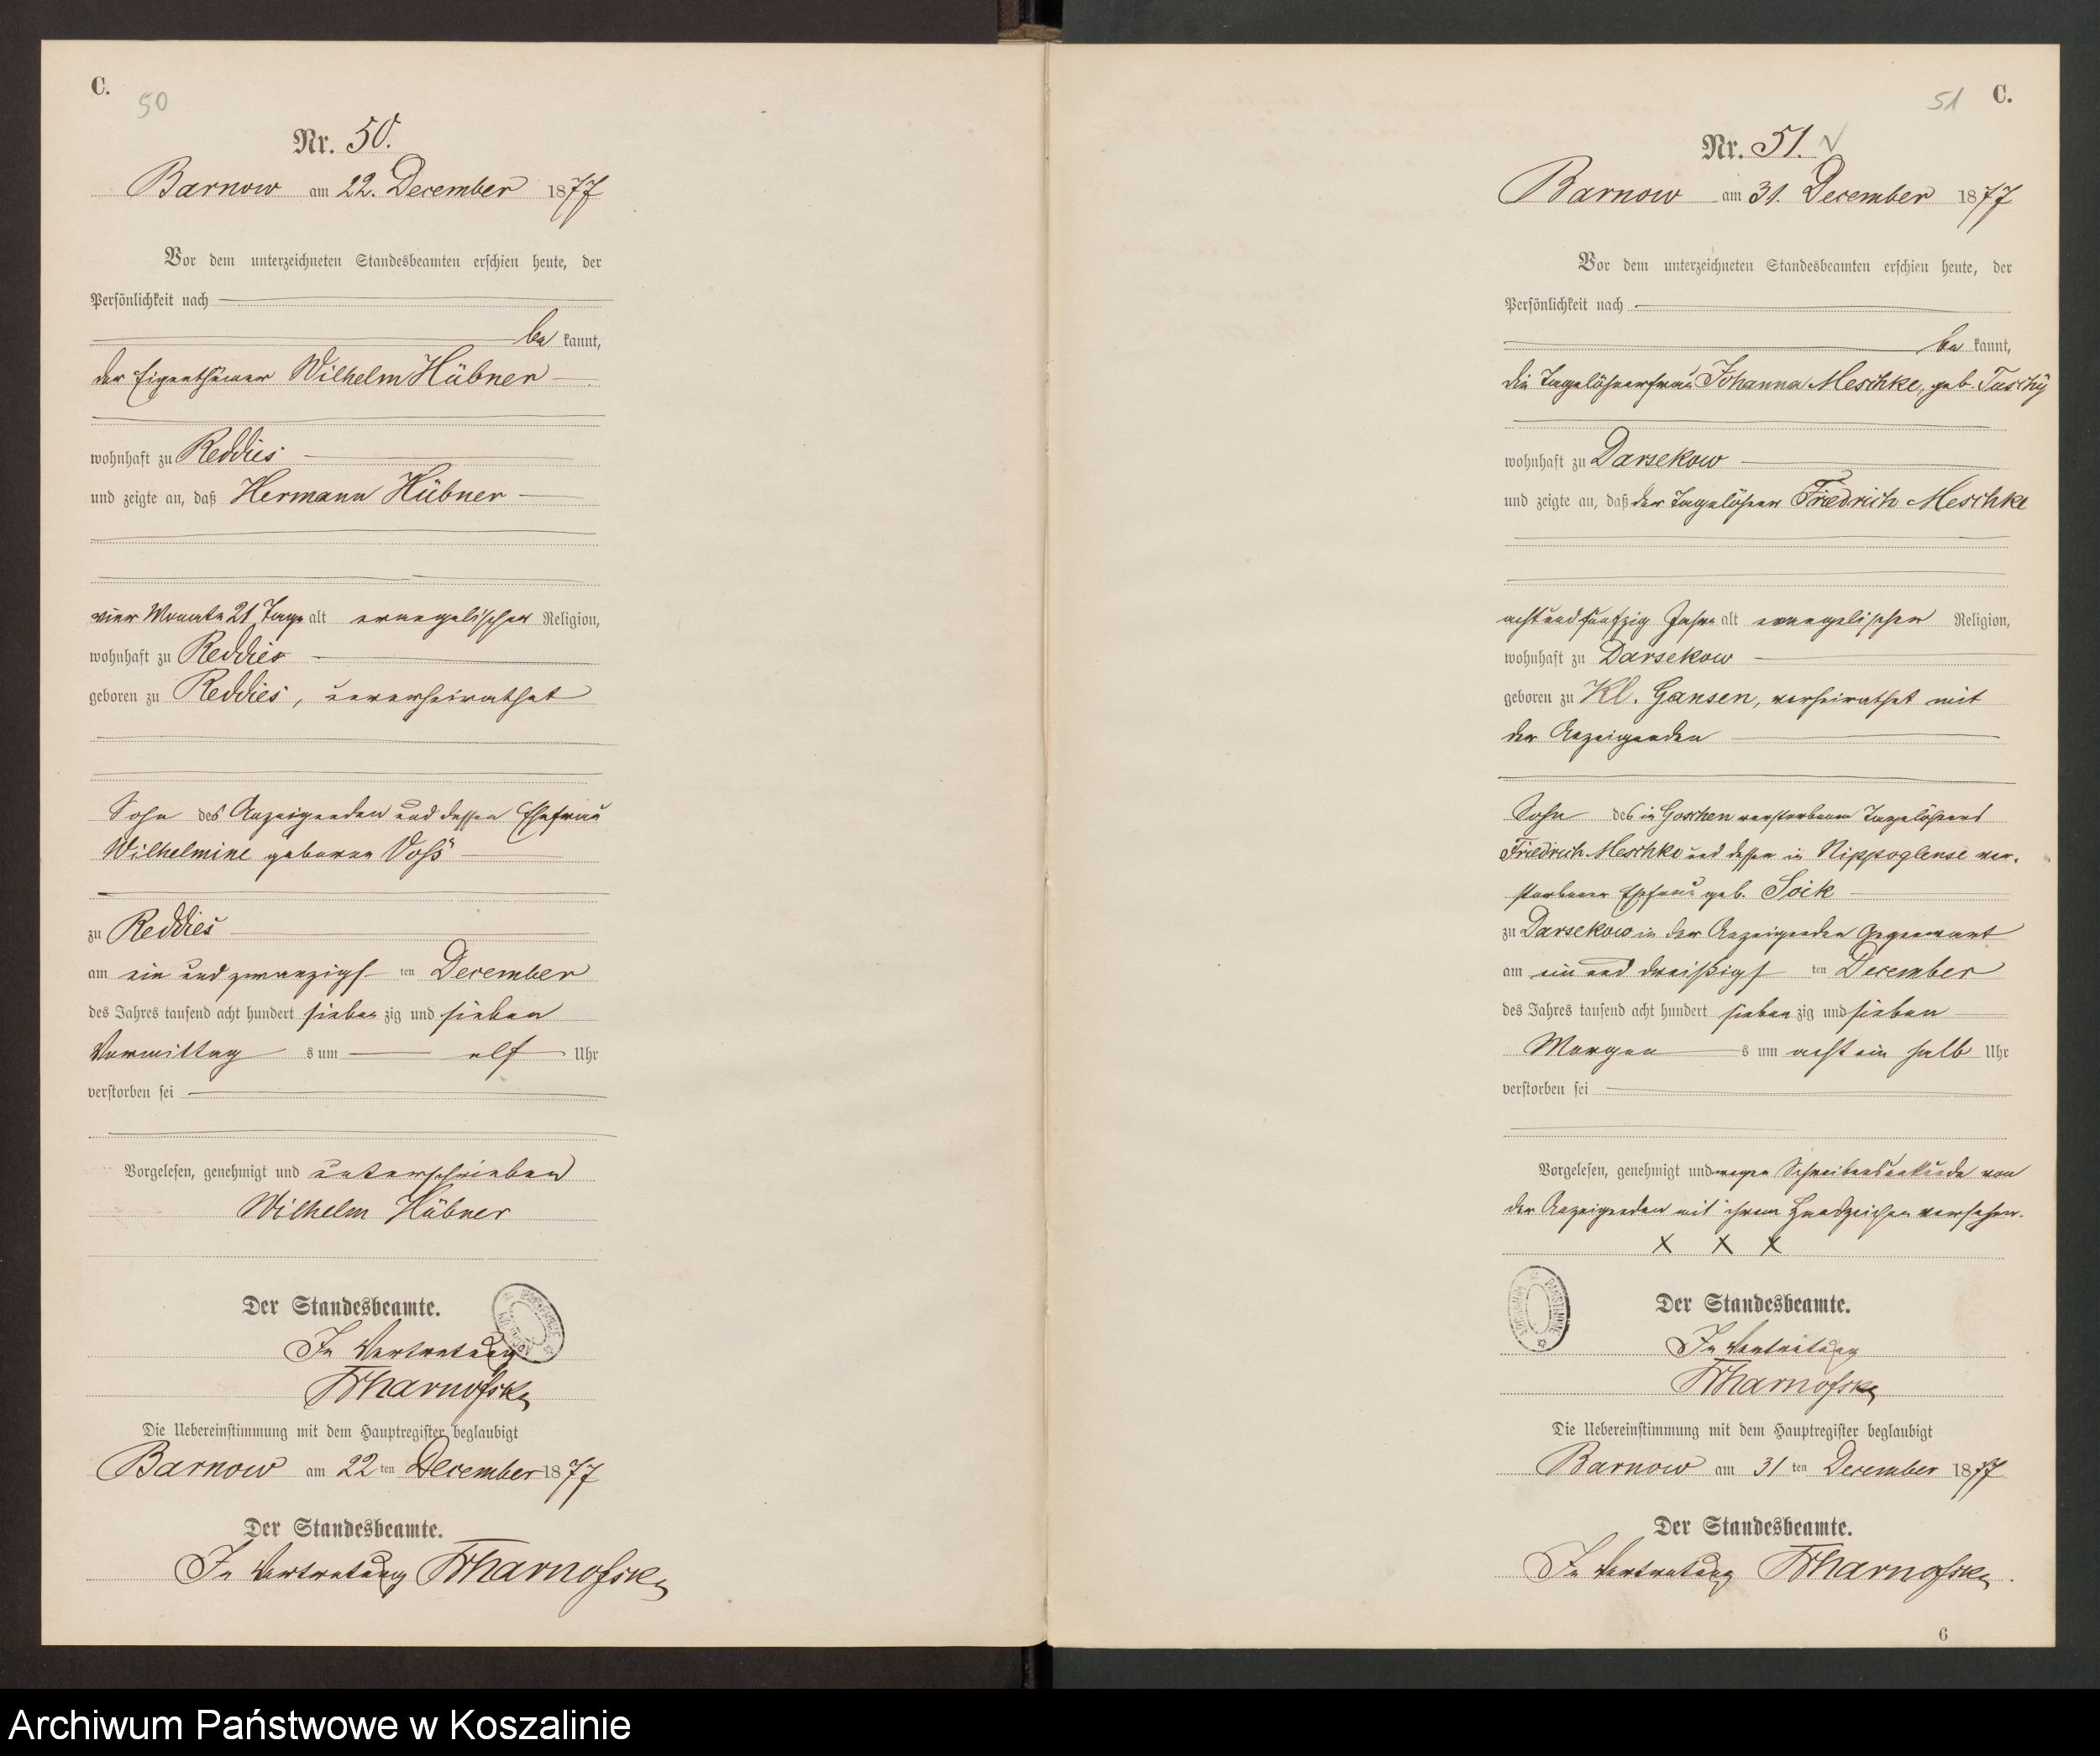 C.
50
Nr. 50.
Barnow am 22. December 1877
Vor dem unterzeichneten Standesbeamten erschien heute, der
Persönlichkeit nach
be kannt,
der Eigenthümer Wilhelm Hübner
wohnhaft zu Reddies
und zeigte an, daß Hermann Hübner
vier Monate 21 Tage alt evangelischer Religion,
wohnhaft zu Reddies
geboren zu Reddies, unverheirathet
Sohn des Anzeigenden und dessen Ehefrau
Wilhelmine geborene Voß
zu Reddies
am ein und zwanzigs ten December
des Jahres tausend acht hundert sieben zig und sieben
Vormittag s um elf Uhr
verstorben sei
Vorgelesen, genehmigt und unterschrieben
Wilhelm Hübner
Der Standesbeamte.
In Vertretung
Die Uebereinstimmung mit dem Hauptregister beglaubigt
Barnow am 22 ten December 1877
Der Standesbeamte.
In Vertretung
51
C.
Nr. 51.
Barnow am 31. December 1877
Vor dem unterzeichneten Standesbeamten erschien heute, der
Persönlichkeit nach
be kannt,
die Tagelöhnerfrau Johanna Meschke, geb. Tuschy
wohnhaft zu Darsekow
und zeigte an, daß der Tagelöhner Friedrich Meschke
achtundfünfzig Jahre alt evangelischer Religion,
wohnhaft zu Darsekow
geboren zu Kl. Gansen, verheirathet mit
der Anzeigenden
Sohn des in Goschen verstorbenen Tagelöhners
Friedrich Meschke und dessen in Nippoglense ver-
storbener Ehefrau geb. Soik
zu Darsekow in der Anzeigenden Gegenwart
am ein und dreißigs ten December
des Jahres tausend acht hundert sieben zig und sieben
Morgen s um acht ein halb Uhr
verstorben sei
Vorgelesen, genehmigt und wegen Schreibensunkunde von
der Anzeigenden mit ihrem Handzeichen versehen.
X X X
Der Standesbeamte.
In Vertretung
Die Uebereinstimmung mit dem Hauptregister beglaubigt
Barnow am 31 ten December 1877
Der Standesbeamte.
In Vertretung
6
Archiwum Państwowe w Koszalinie